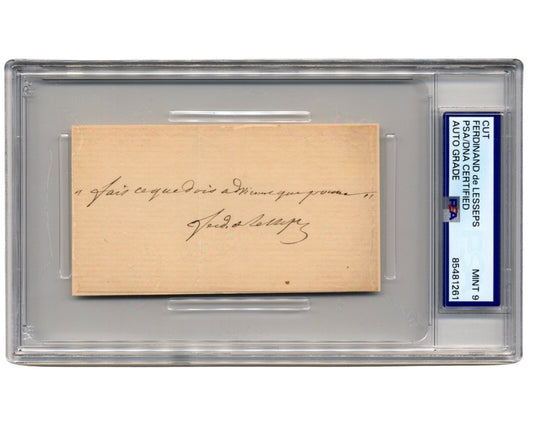 „ fais ce que dois advienne que pourra „
Ferd. de Lesseps
CUT
FERDINAND de LESSEPS
PSA/DNA CERTIFIED
AUTO GRADE MINT 9
PSA 85481261